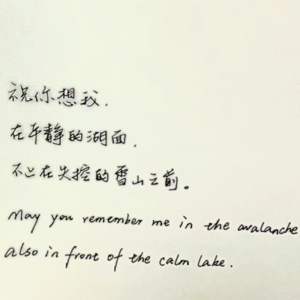 祝你想我，
在平静的湖面，
不止在失控的雪山之前。
May you remember me in the avalanche
also in front of the calm lake.